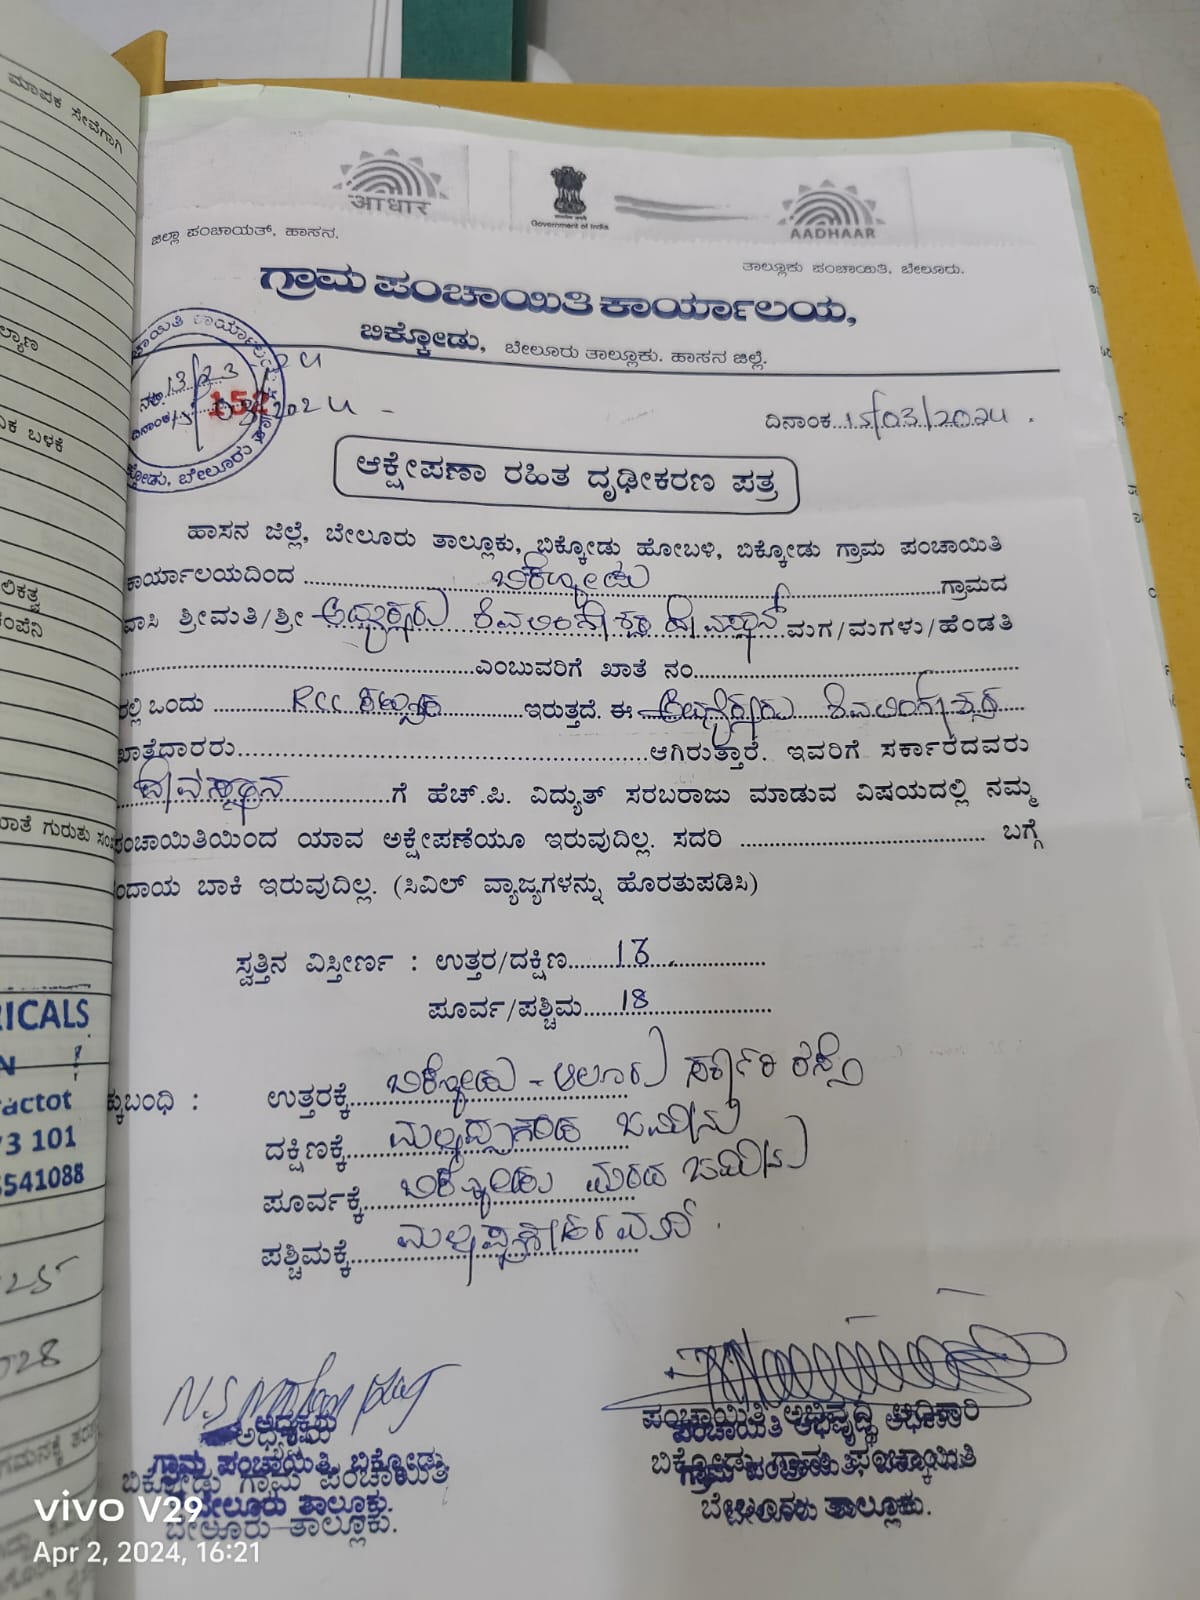 ಮಾಪಕ ಸೇವೆಗಾಗಿ
आधार
Government of India
AADHAAR
ಜಿಲ್ಲಾ ಪಂಚಾಯತ್, ಹಾಸನ.
ತಾಲ್ಲೂಕು ಪಂಚಾಯಿತಿ, ಬೇಲೂರು.
ಗ್ರಾಮ ಪಂಚಾಯಿತಿ ಕಾರ್ಯಾಲಯ,
ಬಿಕ್ಕೋಡು, ಬೇಲೂರು ತಾಲ್ಲೂಕು. ಹಾಸನ ಜಿಲ್ಲೆ.
13/23/24
152
ದಿನಾಂಕ 15/03/2024
ಆಕ್ಷೇಪಣಾ ರಹಿತ ದೃಢೀಕರಣ ಪತ್ರ
ಹಾಸನ ಜಿಲ್ಲೆ, ಬೇಲೂರು ತಾಲ್ಲೂಕು, ಬಿಕ್ಕೋಡು ಹೋಬಳಿ, ಬಿಕ್ಕೋಡು ಗ್ರಾಮ ಪಂಚಾಯಿತಿ
ಕಾರ್ಯಾಲಯದಿಂದ ಬಿಕ್ಕೋಡು ಗ್ರಾಮದ
ವಾಸಿ ಶ್ರೀಮತಿ/ಶ್ರೀ ಅಧ್ಯಕ್ಷರು ಶಿವಲಿಂಗೇಶ್ವರ ದೇವಸ್ಥಾನ ಮಗ/ಮಗಳು/ಹೆಂಡತಿ
ಎಂಬುವರಿಗೆ ಖಾತೆ ನಂ
ರಲ್ಲಿ ಒಂದು RCC ಕಟ್ಟಡ ಇರುತ್ತದೆ. ಈ ಅಧ್ಯಕ್ಷರು ಶಿವಲಿಂಗೇಶ್ವರ
ಖಾತೆದಾರರು ಆಗಿರುತ್ತಾರೆ. ಇವರಿಗೆ ಸರ್ಕಾರದವರು
ದೇವಸ್ಥಾನ ಗೆ ಹೆಚ್.ಪಿ. ವಿದ್ಯುತ್ ಸರಬರಾಜು ಮಾಡುವ ವಿಷಯದಲ್ಲಿ ನಮ್ಮ
ಪಂಚಾಯಿತಿಯಿಂದ ಯಾವ ಅಕ್ಷೇಪಣೆಯೂ ಇರುವುದಿಲ್ಲ. ಸದರಿ ಬಗ್ಗೆ
ಂದಾಯ ಬಾಕಿ ಇರುವುದಿಲ್ಲ. (ಸಿವಿಲ್ ವ್ಯಾಜ್ಯಗಳನ್ನು ಹೊರತುಪಡಿಸಿ)
ಸ್ವತ್ತಿನ ವಿಸ್ತೀರ್ಣ : ಉತ್ತರ/ದಕ್ಷಿಣ 13
ಪೂರ್ವ/ಪಶ್ಚಿಮ 18
ಕ್ಕುಬಂಧಿ : ಉತ್ತರಕ್ಕೆ ಬಿಕ್ಕೋಡು - ಆಲೂರು ಸರ್ಕಾರಿ ರಸ್ತೆ
ದಕ್ಷಿಣಕ್ಕೆ ಜಮೀನು
ಪೂರ್ವಕ್ಕೆ ಬಿಕ್ಕೋಡು ಜಮೀನು
ಪಶ್ಚಿಮಕ್ಕೆ
ಅಧ್ಯಕ್ಷರು
ಗ್ರಾಮ ಪಂಚಾಯಿತಿ, ಬಿಕ್ಕೋಡು
ಬೇಲೂರು ತಾಲ್ಲೂಕು.
ಪಂಚಾಯಿತಿ ಅಭಿವೃದ್ಧಿ ಅಧಿಕಾರಿ
ಬಿಕ್ಕೋಡು ಗ್ರಾಮ ಪಂಚಾಯಿತಿ
ಬೇಲೂರು ತಾಲ್ಲೂಕು.
ICALS
actot
3 101
541088
vivo V29
Apr 2, 2024, 16:21